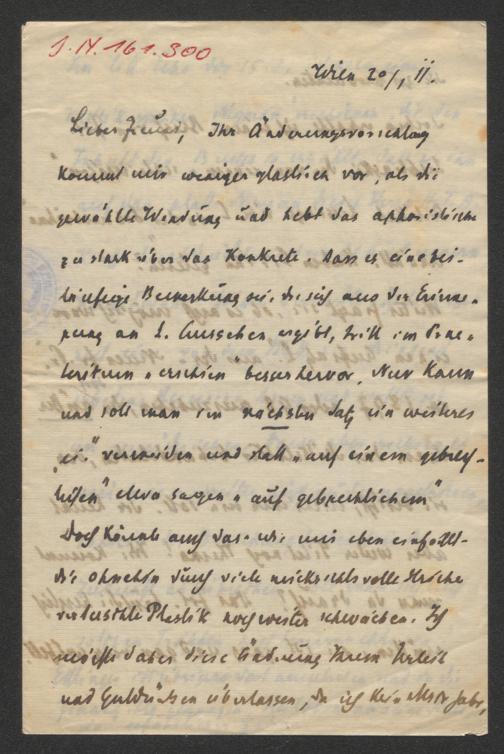 J. N. 161.300
Wien 20/, II.
Lieber Freund, Ihr Änderungsvorschlag
kommt mir weniger plastisch vor, als die
gewählte Wendung und hebt das aphoristische
zu stark über das Konkrete. Dass es eine bei-
läufige Bemerkung sei, die sich aus der Erinne-
rung an L. Aussehen ergibt, tritt im Prae-
teritum „erschien" besser hervor. Nur kann
und soll man im nächsten Satz ein weiteres
„ei" vermeiden und statt „auf einem gebrech-
lichen" etwa sagen „auf gebrechlichem"
Doch könnte auch das - wie mir eben einfällt -
die ohnehin durch viele rücksichtsvolle Striche
Plastik noch weiter schwächen. Ich
möchte daher diese Änderung Ihrem Urteil
und Gutdünken überlassen, da ich